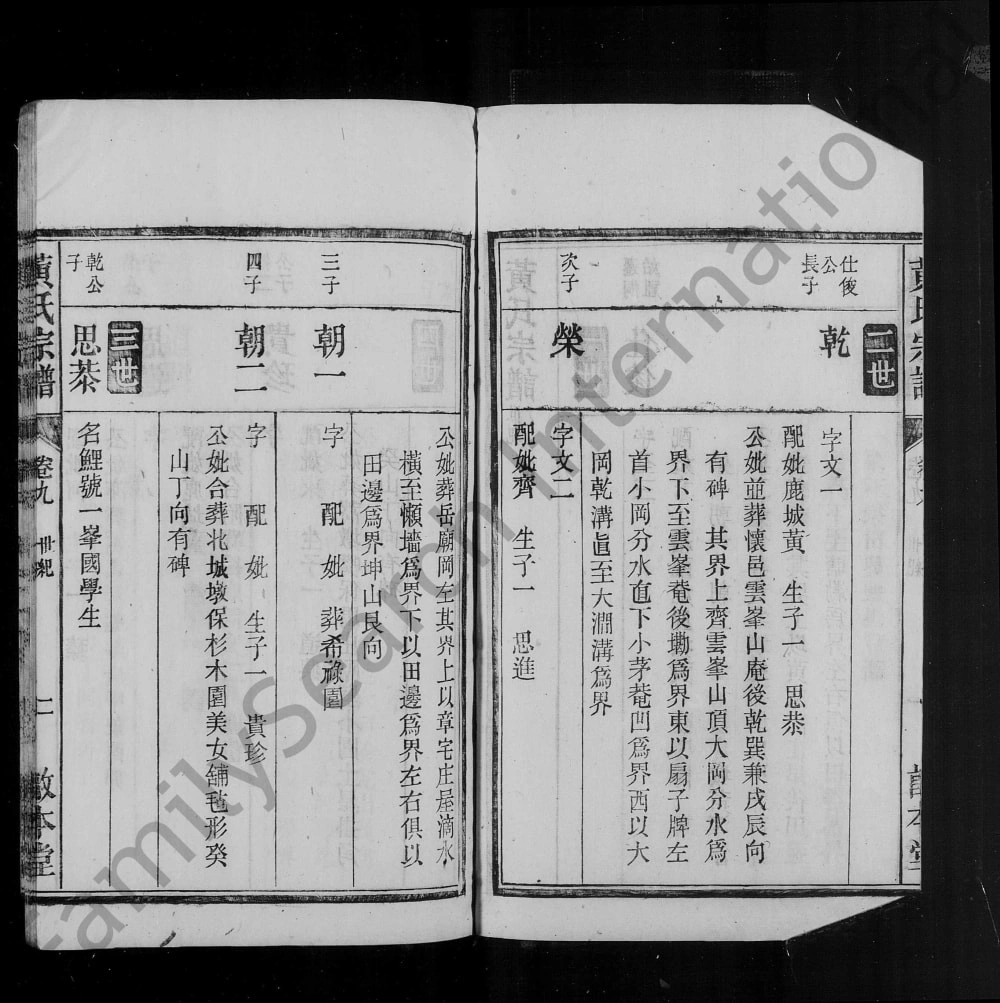 二世
仕俊公長子
乾
字文一
配妣鹿城黃 生子一 思㳟
公妣並葬懷邑雲峯山庵後乾巽兼戌辰向
有碑 其界上齊雲峯山頂大岡分水爲
界下至雲峯菴後墈爲界東以扇子牌左
首小岡分水直下小茅菴凹爲界西以大
岡乾溝直至大澗溝爲界
次子
榮
字文二
配妣齊 生子一 思進
公妣葬岳廟岡左其界上以章宅庄屋滴水
橫至懶墻爲界下以田邊爲界左右俱以
田邊爲界坤山艮向
三子
朝一
字 配 妣 葬希祿園
四子
朝二
字 配 妣 生子一 貴珍
公妣合葬北城墩保杉木園美女舖毡形癸
山丁向有碑
三世
乾公子
思㳟
名鯉號一峯國學生
黃氏宗譜
卷九 世紀
二
敦本堂
FamilySearch International